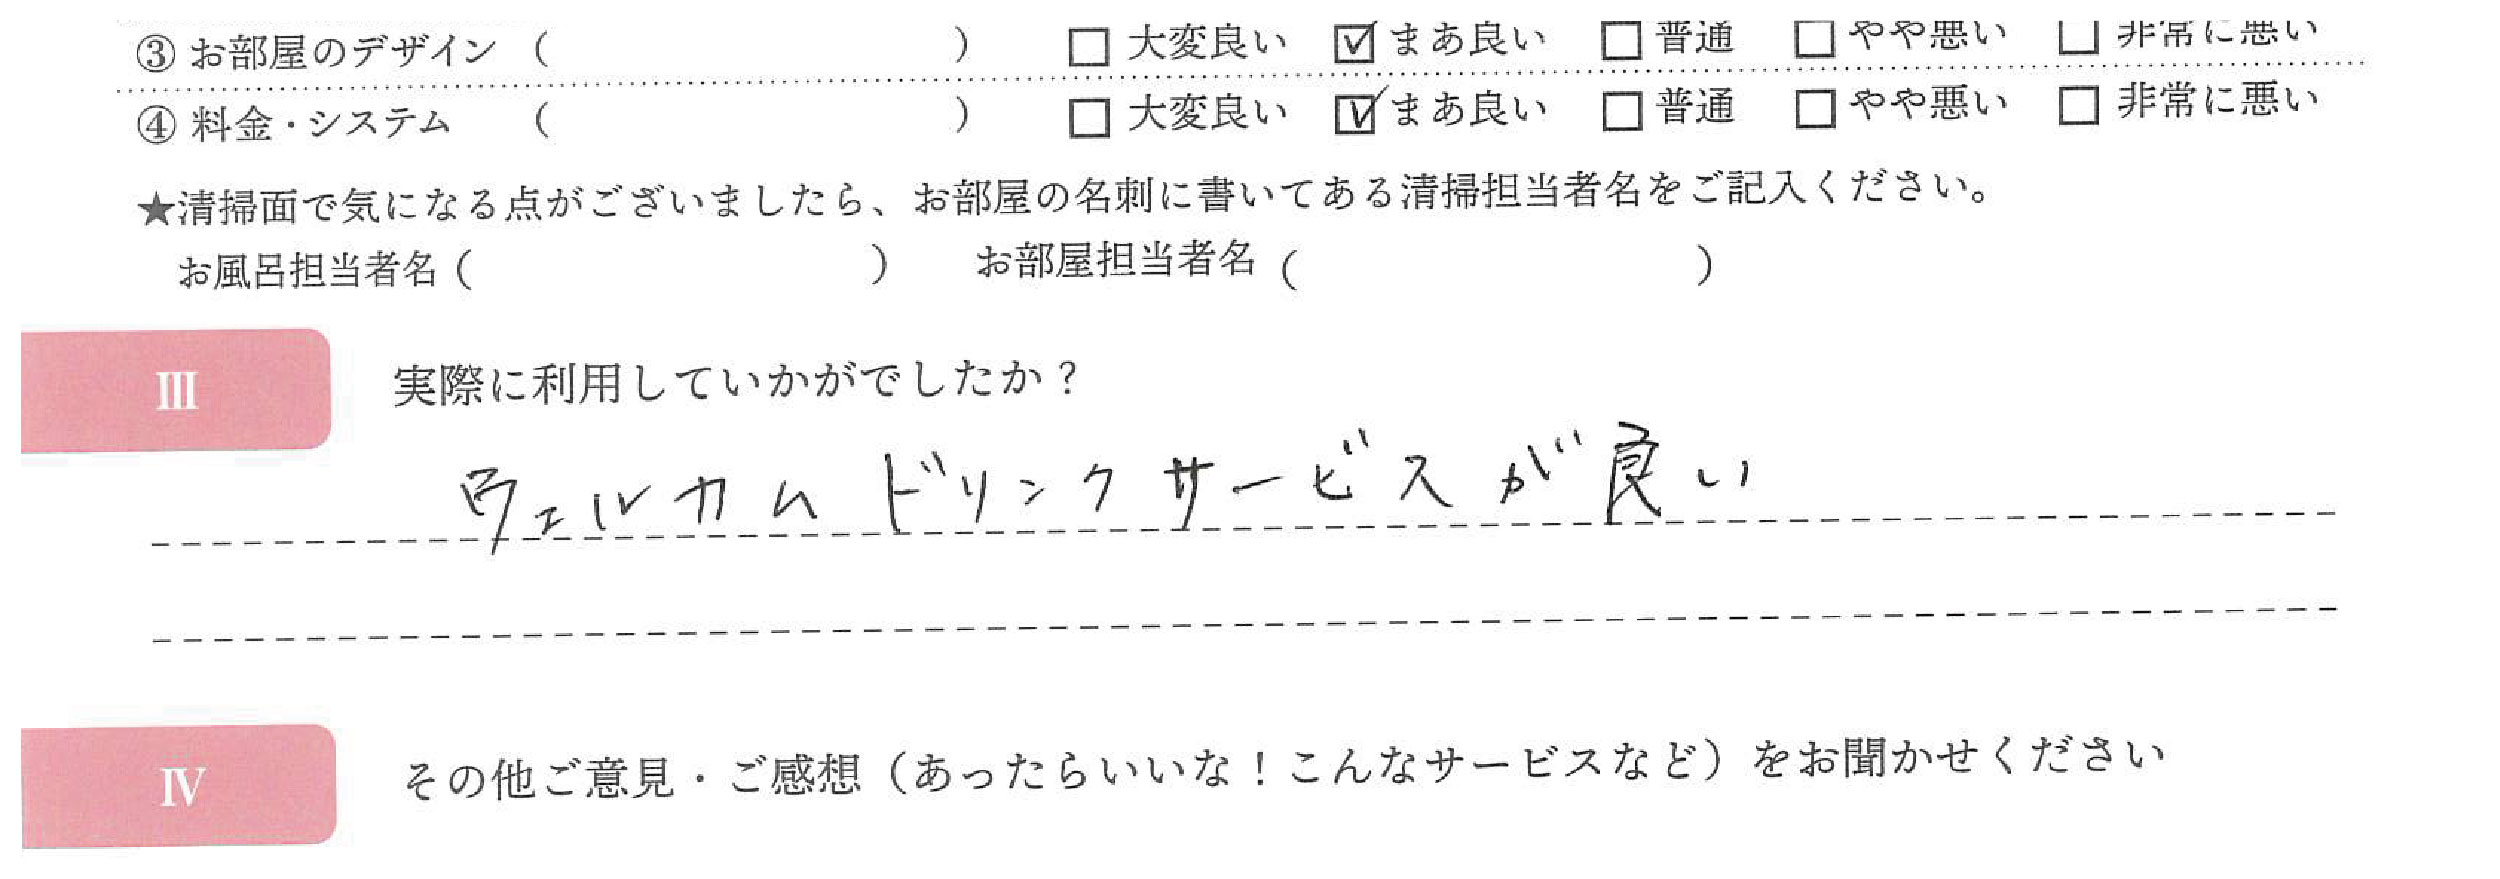 ③ お部屋のデザイン ( ) □ 大変良い ☑ まあ良い □ 普通 □ やや悪い □ 非常に悪い
④ 料金・システム ( ) □ 大変良い ☑ まあ良い □ 普通 □ やや悪い □ 非常に悪い
★清掃面で気になる点がございましたら、お部屋の名刺に書いてある清掃担当者名をご記入ください。
お風呂担当者名 ( ) お部屋担当者名 ( )
III 実際に利用していかがでしたか?
ウェルカムドリンクサービスが良い
IV その他ご意見・ご感想(あったらいいな!こんなサービスなど)をお聞かせください